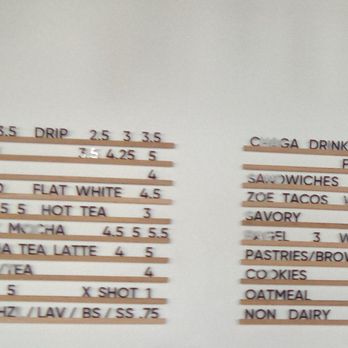 3.5 DRIP 2.5 3 3.5
3.5 4.25 5
4
FLAT WHITE 4.5
5 5 HOT TEA 3
MOCHA 4.5 5 5.5
TEA LATTE 4 5
/TEA 4
5 X SHOT 1
/ LAV / BS / SS .75
CHAGA DRINK
SANDWICHES
ZOE TACOS W
SAVORY
BAGEL 3 W
PASTRIES/BROW
COOKIES
OATMEAL
NON DAIRY